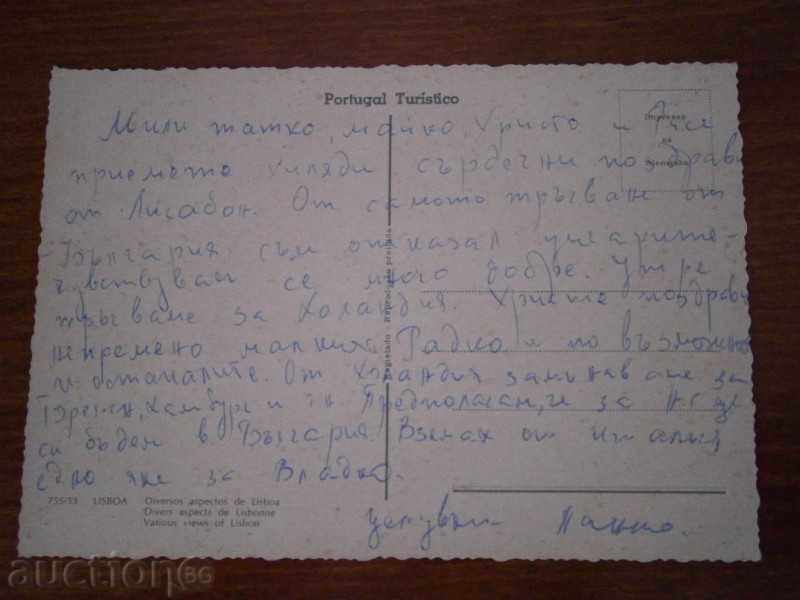 Portugal Turístico
Мили татко, майко, Христо и
приемете хиляди сърдечни поздрави
от Лисабон. От самото тръгване от
България съм отказал цигарите -
чувствувам се много добре. Утре
тръгваме за Холандия. Христо поздрави
непременно малкия Радко и по възможност
и останалите. От Холандия заминаваме за
Бремен, Хамбург и Предполагам, че за
си бъдем в България. Взепах от
едно яке за Владко.
целувки Панчо.
755/53 LISBOA Diversos aspectos de Lisboa
Divers aspects de Lisbonne
Various views of Lisbon
auction.bg